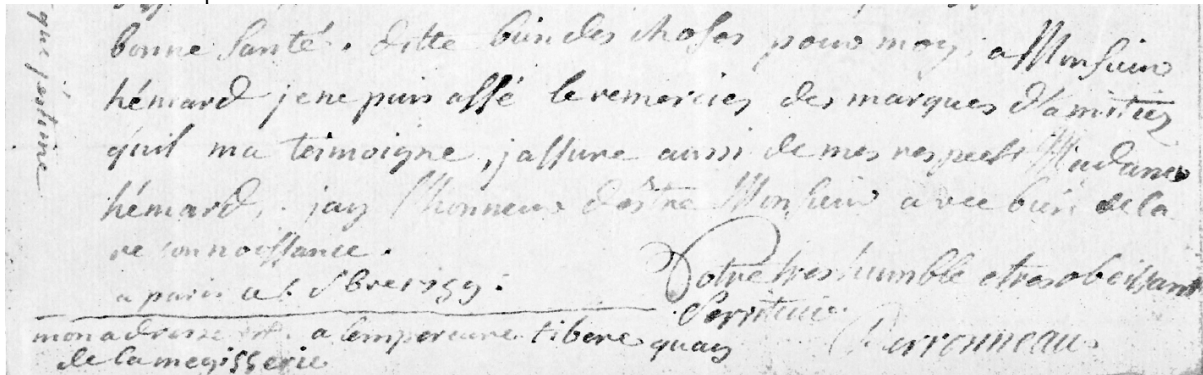 bonne santé. ditte bien des choses pour moy a Monsieur
hémard je ne puis assé le remercier des marques d'amitiez
qu'il ma teimoigne, jassure aussi de mes respects Madame
hémard, jay l'honneur d'estre Monsieur avec bien de la
reconnoissance.
Votre tres humble et tres obeissant
a paris a 8bre 1759.
Serviteur
Perronneau
mon adresse est a lempereure tibere quay
de la megisserie
que jestime